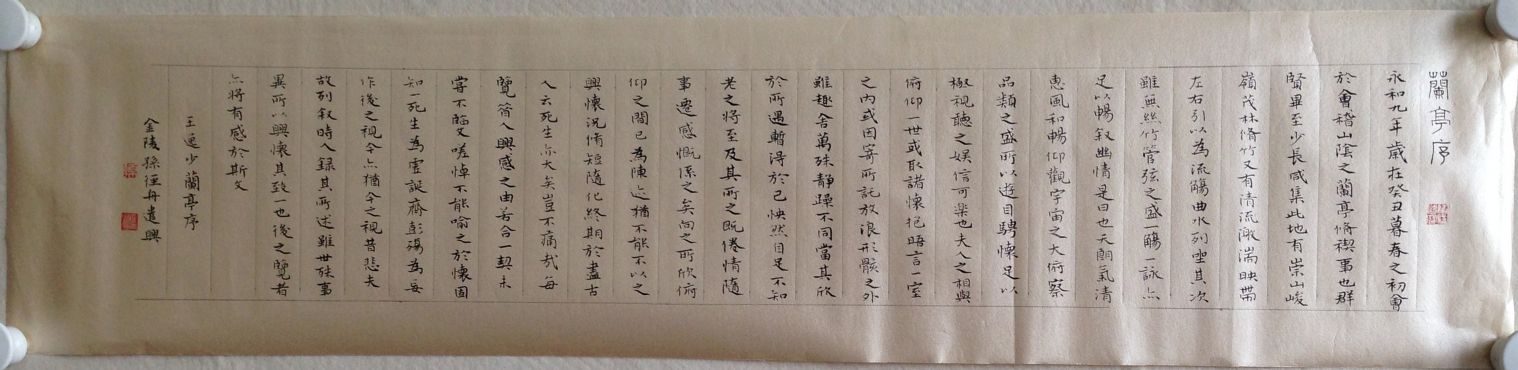 蘭亭序
永和九年歲在癸丑暮春之初會
於會稽山陰之蘭亭脩禊事也群
賢畢至少長咸集此地有崇山峻
嶺茂林脩竹又有清流激湍映帶
左右引以為流觴曲水列坐其次
雖無絲竹管弦之盛一觴一詠亦
足以暢敘幽情是日也天朗氣清
惠風和暢仰觀宇宙之大俯察
品類之盛所以遊目騁懷足以
極視聽之娛信可樂也夫人之相與
俯仰一世或取諸懷抱晤言一室
之內或因寄所託放浪形骸之外
雖趣舍萬殊靜躁不同當其欣
於所遇暫得於己怏然自足不知
老之將至及其所之既倦情隨
事遷感慨係之矣向之所欣俯
仰之間已為陳迹猶不能不以之
興懷況脩短隨化終期於盡古
人云死生亦大矣豈不痛哉每
覽昔人興感之由若合一契未
嘗不臨文嗟悼不能喻之於懷固
知一死生為虛誕齊彭殤為妄
作後之視今亦猶今之視昔悲夫
故列敘時人錄其所述雖世殊事
異所以興懷其致一也後之覽者
亦將有感於斯文
王逸少蘭亭序
金陵孫徑舟遣興